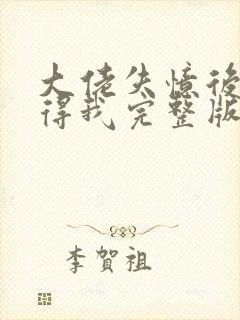 大佬失憶後
得我完整版
李賀祖